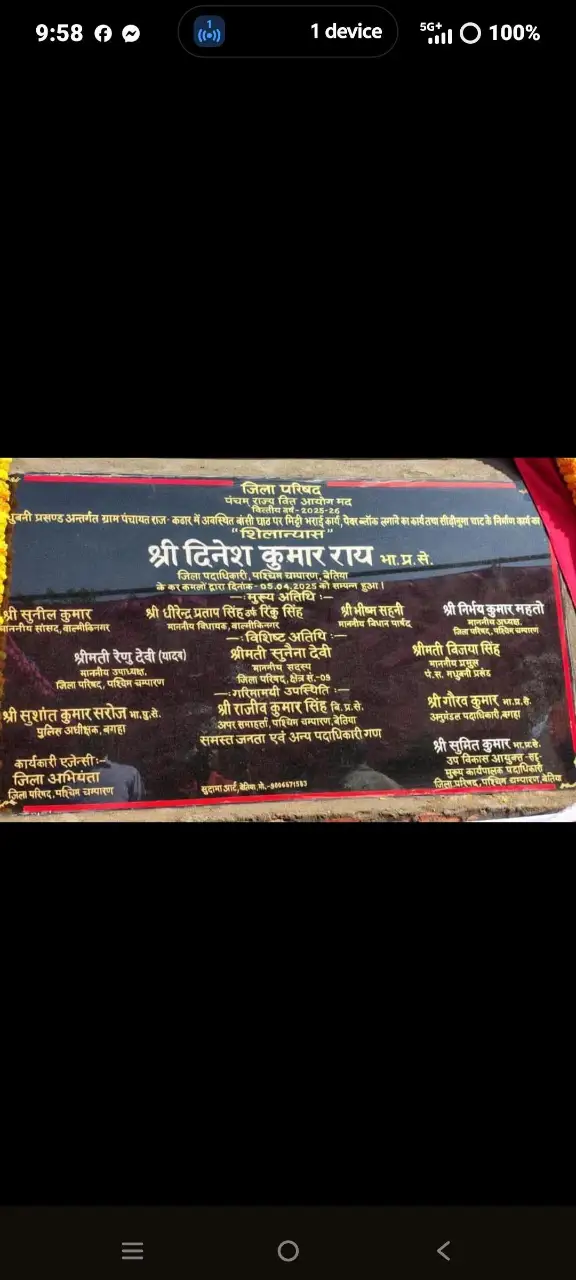 9:58
1
1 device
5G+
100%
जिला परिषद
पंचम राज्य वित्त आयोग मद
वित्तीय वर्ष - 2025-26
धुबनी प्रखण्ड अन्तर्गत ग्राम पंचायत राज - कठार में अवस्थित बांसी घाट पर मिट्टी भराई कार्य, पेवर ब्लॉक लगाने का कार्य तथा सीढ़ीनुमा घाट के निर्माण कार्य का
"शिलान्यास"
श्री दिनेश कुमार राय भा.प्र.से.
जिला पदाधिकारी, पश्चिम चम्पारण, बेतिया
के कर कमलों द्वारा दिनांक - 05.04.2025 को सम्पन्न हुआ।
—: मुख्य अतिथि :—
श्री सुनील कुमार श्री धीरेन्द्र प्रताप सिंह उर्फ रिंकु सिंह श्री भीष्म सहनी श्री निर्भय कुमार महतो
माननीय सांसद, वाल्मीकिनगर माननीय विधायक, वाल्मीकिनगर माननीय विधान पार्षद माननीय अध्यक्ष,
जिला परिषद, पश्चिम चम्पारण
—: विशिष्ट अतिथि :—
श्रीमती रेणु देवी (यादव) श्रीमती सुनैना देवी श्रीमती विजया सिंह
माननीय उपाध्यक्ष, माननीय सदस्य माननीय प्रमुख
जिला परिषद, पश्चिम चम्पारण जिला परिषद, क्षेत्र सं.-09 पं.स. मधुबनी प्रखंड
—: गरिमामयी उपस्थिति :—
श्री सुशांत कुमार सरोज भा.पु.से. श्री राजीव कुमार सिंह बि.प्र.से. श्री गौरव कुमार भा.प्र.से.
पुलिस अधीक्षक, बगहा अपर समाहर्ता, पश्चिम चम्पारण, बेतिया अनुमंडल पदाधिकारी, बगहा
समस्त जनता एवं अन्य पदाधिकारी गण
श्री सुमित कुमार भा.प्र.से.
उप विकास आयुक्त -सह-
मुख्य कार्यपालक पदाधिकारी
जिला परिषद, पश्चिम चम्पारण, बेतिया
कार्यकारी एजेन्सी:-
जिला अभियंता
जिला परिषद, पश्चिम चम्पारण
सुदामा आर्ट, बेतिया, मो.-9006571593